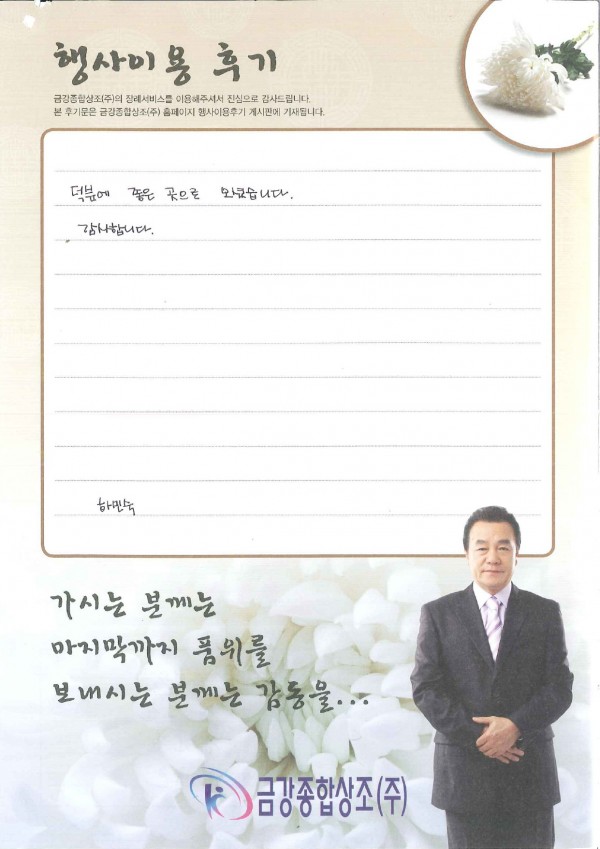 행사이용 후기
금강종합상조(주)의 장례서비스를 이용해주셔서 진심으로 감사드립니다.
본 후기문은 금강종합상조(주) 홈페이지 행사이용후기 게시판에 기재됩니다.
덕분에 좋은 곳으로
감사합니다.
하민숙
가시는 분께는
마지막까지 품위를
보내시는 분께는 감동을...
금강종합상조(주)